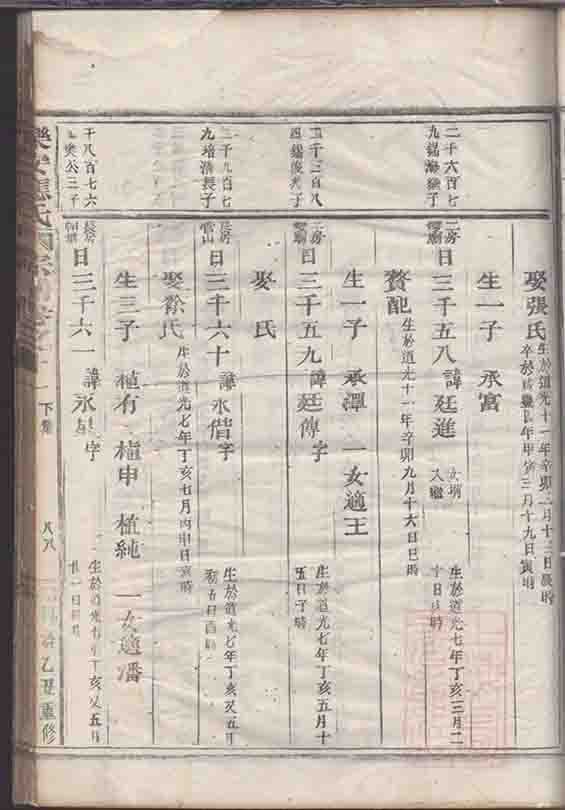 娶張氏
生於道光十一年辛卯二月十三日辰時
卒於咸豐四年甲寅三月十九日寅時
生一子 承富
二千六百七
九錫海繼子
二房
日三千五八 諱廷進
生於道光七年丁亥三月二
十日戌時
贅配 生於道光十一年辛卯九月十六日巳時
生一子 承潭 一女適王
二千三百八
四錫俊次子
二房
日三千五九 諱廷傳 字
生於道光七年丁亥五月十
五日子時
娶 氏
三千九百七
九培清長子
長房
官山
日三千六十 諱永偕 字
生於道光七年丁亥又五月
初五日酉時
娶徐氏 生於道光七年丁亥七月丙申日寅時
生三子 植有 植申 植純 一女適潘
千八百七六
長房
日三千六一 諱永 字
生於道光七年丁亥又五月
下集
八八
乙丑重修